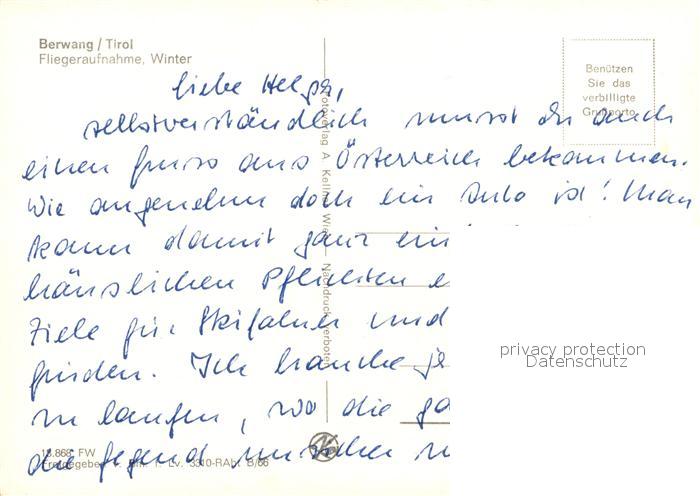 Berwang / Tirol
Fliegeraufnahme, Winter
Benützen
Sie das
verbilligte
Grußporto
Liebe Helga,
selbstverständlich musst du auch
einen Gruss aus Österreich bekommen.
Wie angenehm doch ein Auto ist! Man
kann damit ganz ein
häuslichen Pflichten e
Ziele für Skifahrer und
finden. Ich brauche je
zu laufen, wo die ga
die Gegend unsicher m
Fotoverlag A. Wien — Nachdruck verboten
privacy protection
Datenschutz
13.868 FW
Freigegeben v. Lv. 3310-RAbt. B/66